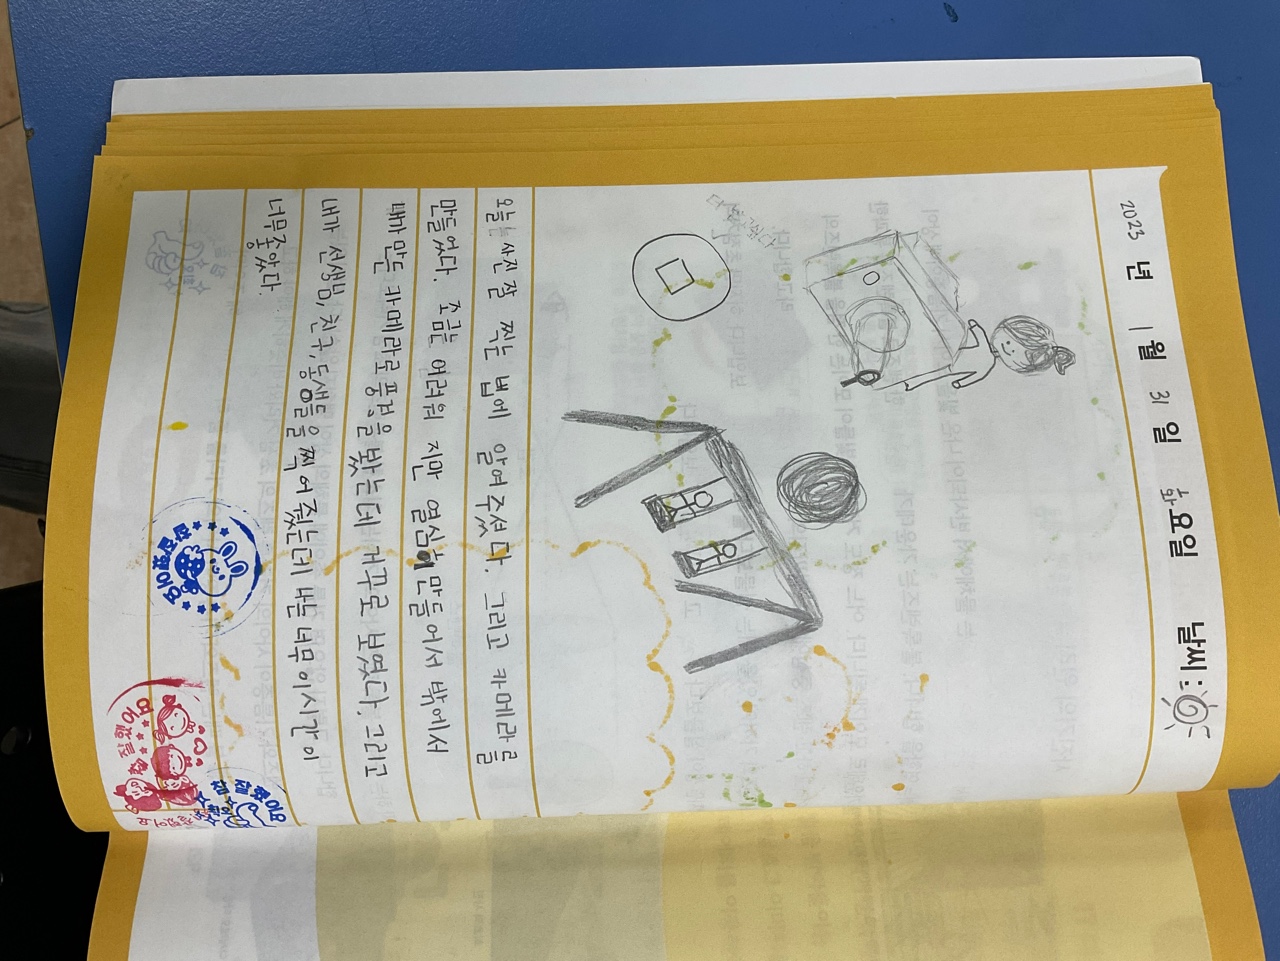 2023 년 1 월 31 일 화요일 날씨 :
오늘은 사진 잘 찍는 법에 알여 주셨다. 그리고 카메라를
만들었다. 조금은 어려워 지만 열심히 만들어서 밖에서
내가 만든 카메라로 풍경을 봤는데 거꾸로 보였다. 그리고
내가 선생님, 친구, 동생들을 찍어 줬는데 나는 너무 이시간이
너무 좋았다.
참 잘했어요
참 잘했어요